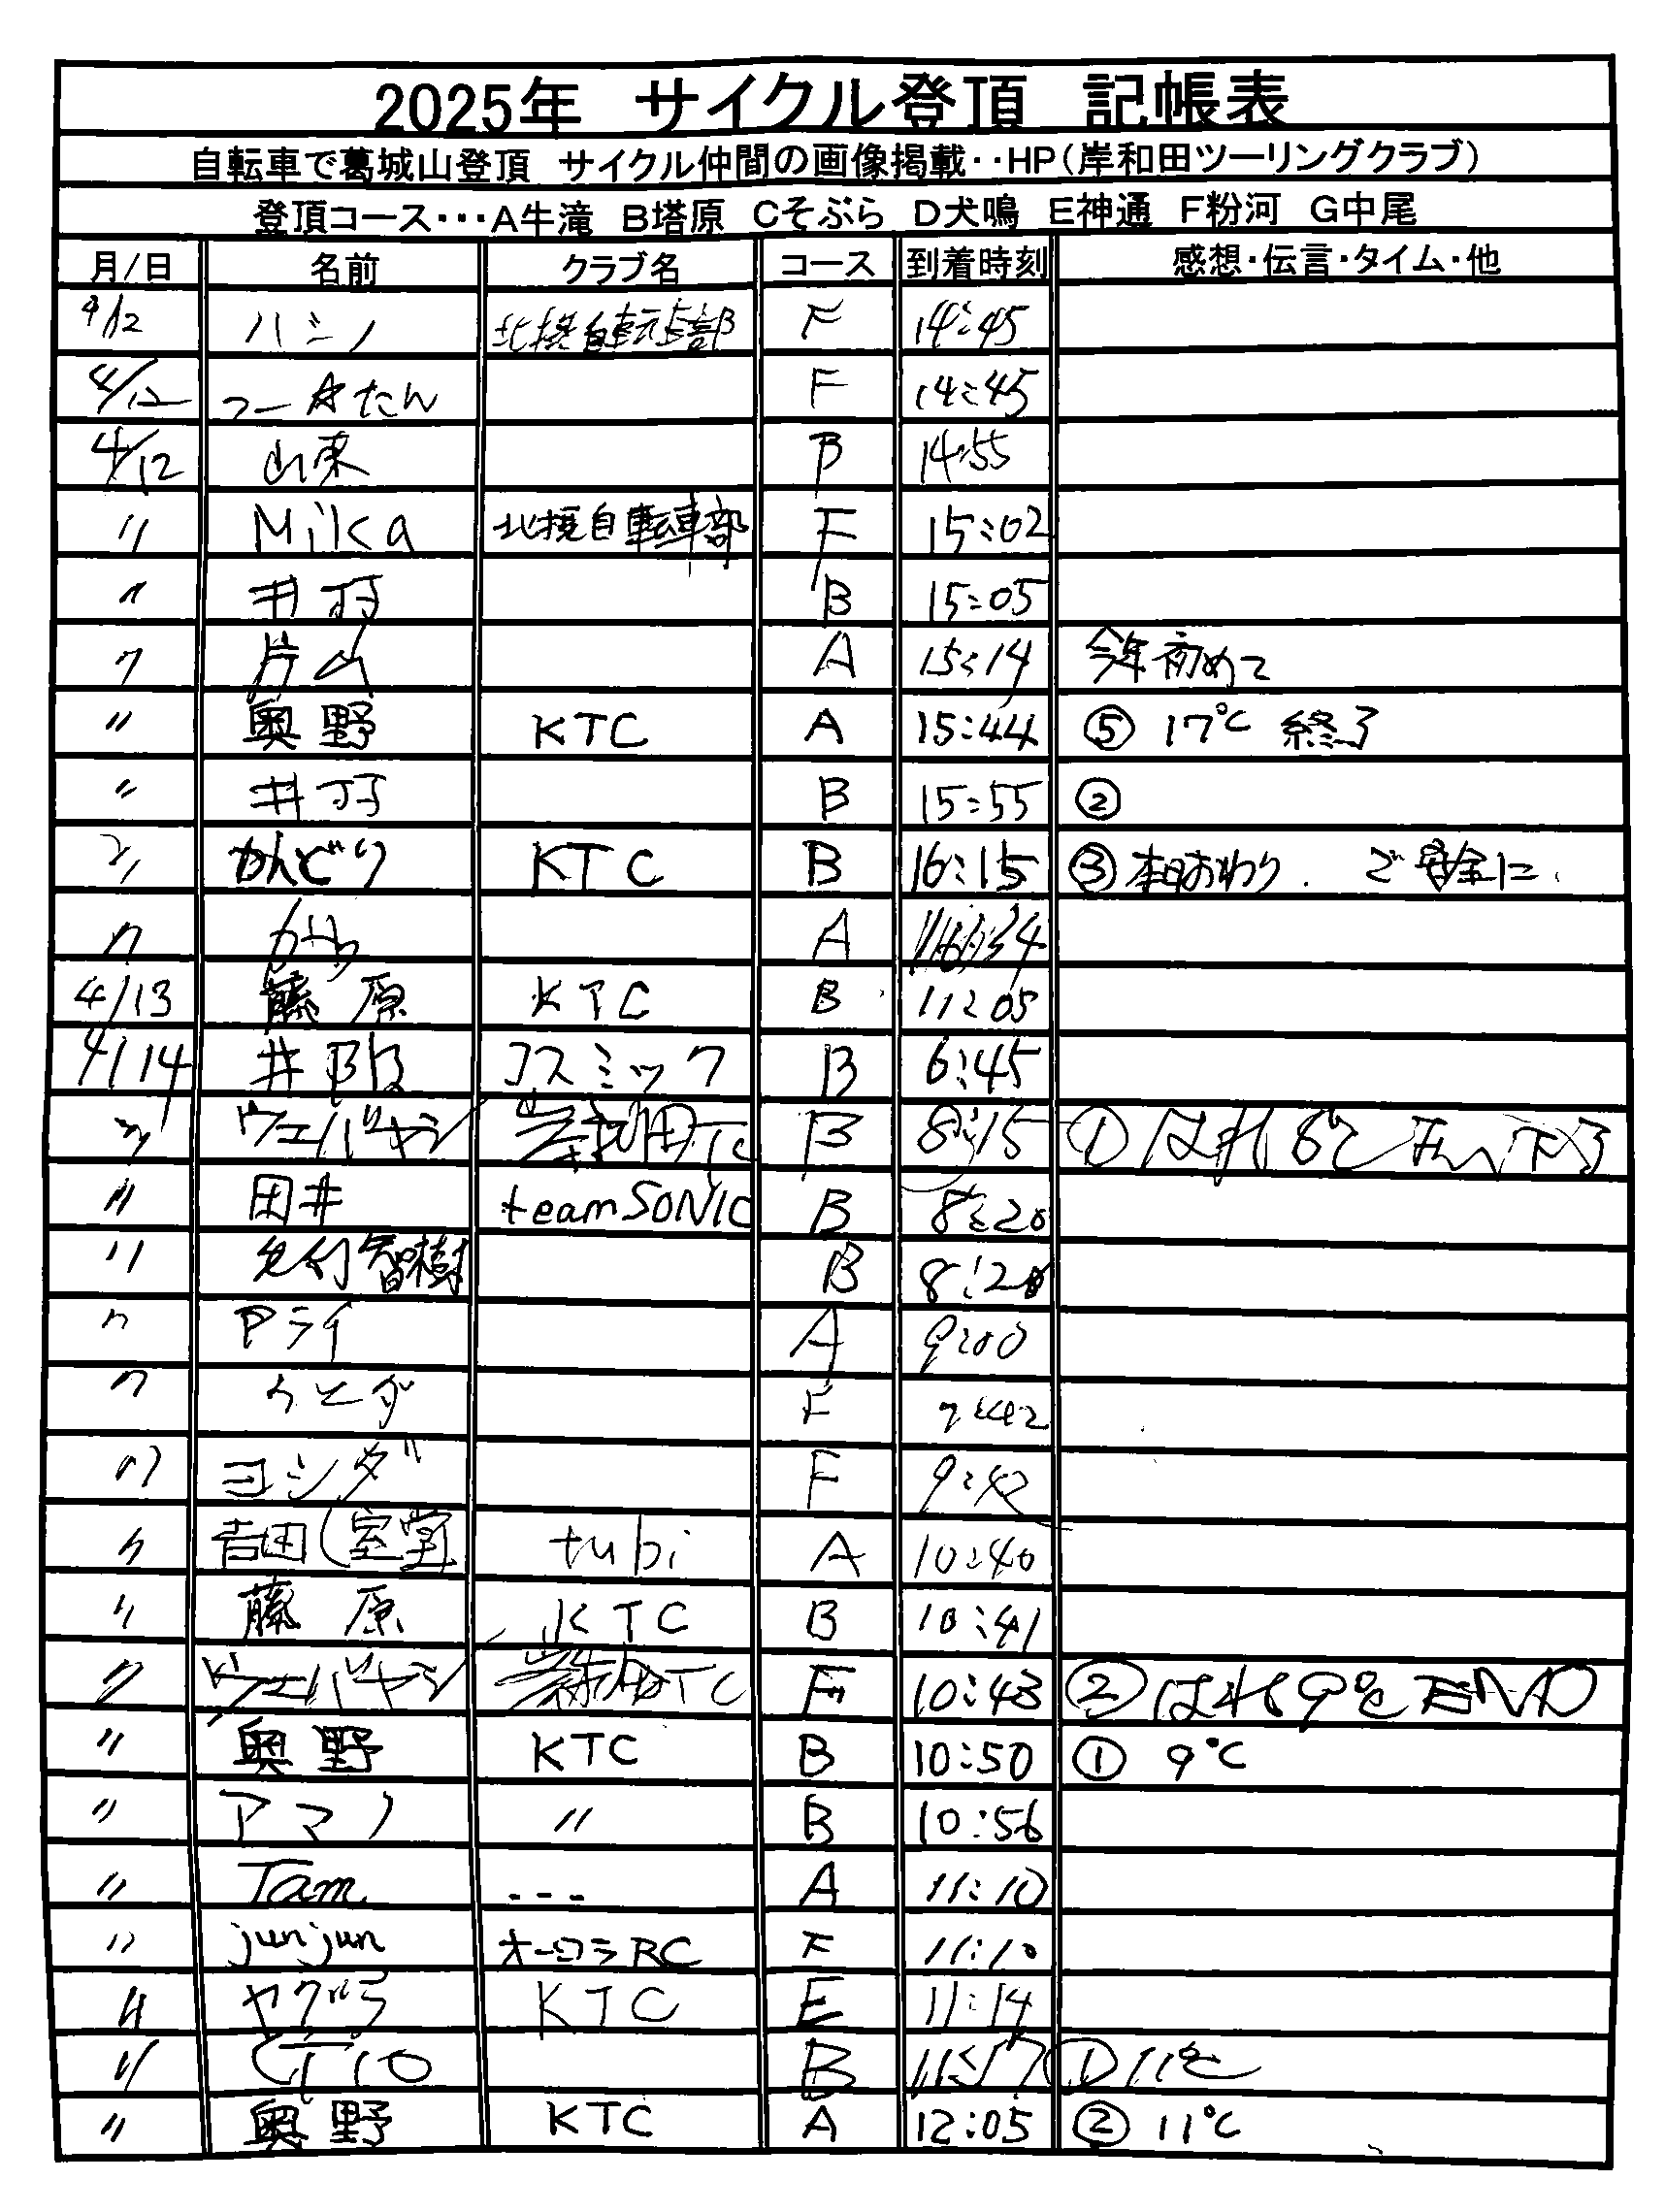 2025年 サイクル登頂 記帳表
自転車で葛城山登頂 サイクル仲間の画像掲載・・HP(岸和田ツーリングクラブ)
登頂コース・・・A牛滝 B塔原 Cそぶら D犬鳴 E神通 F粉河 G中尾
月/日 名前 クラブ名 コース 到着時刻 感想・伝言・タイム・他
4/12 ハシノ 北摂自転車部 F 14:45
4/12 コー☆たん F 14:45
4/12 山東 B 14:55
〃 Mika 北摂自転車部 F 15:02
〃 井村 B 15:05
〃 片山 A 15:14 今年初めて
〃 奥野 KTC A 15:44 ⑤ 17℃ 終了
〃 井村 B 15:55 ②
〃 かんどり KTC B 16:15 ③ 本日おわり. ご安全に.
〃 A 16:34
4/13 藤原 KTC B 11:05
4/14 井阪 コスミック B 6:45
〃 ヴェバヤシ 岸和田TC B 8:15 ① はれ 8℃
〃 田井 teamSONIC B 8:20
〃 智樹 B 8:20
〃 アライ A 9:00
〃 F 9:42
〃 ヨシダ F 9:42
〃 吉田(室堂 tubi A 10:40
〃 藤原 KTC B 10:41
〃 ヴェバヤシ 岸和田TC F 10:43 ② はれ 9℃
〃 奥野 KTC B 10:50 ① 9℃
〃 アマノ 〃 B 10:56
〃 Tam --- A 11:10
〃 junjun オーロラRC F 11:10
〃 ヤグラ KTC E 11:14
〃 B 11:17 ① 11℃
〃 奥野 KTC A 12:05 ② 11℃